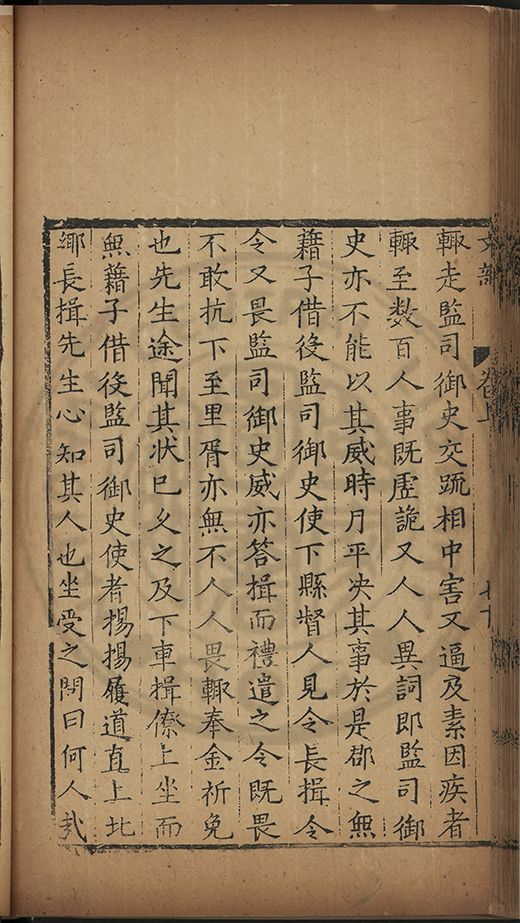 文部 卷上 七十
輙走監司御史交䟽相中害又逼及素因疾者
輙至数百人事既虚詭又人人異詞即監司御
史亦不能以其威時月平决其事於是郡之無
藉子借役監司御史使下縣督人見令長揖令
令又畏監司御史威亦答揖而禮遣之令既畏
不敢抗下至里胥亦無不人人畏輙奉金祈免
也先生途聞其状已乆之及下車揖僚上坐而
無藉子借役監司御史使者揚揚履道直上北
鄉長揖先生心知其人也坐受之問曰何人哉